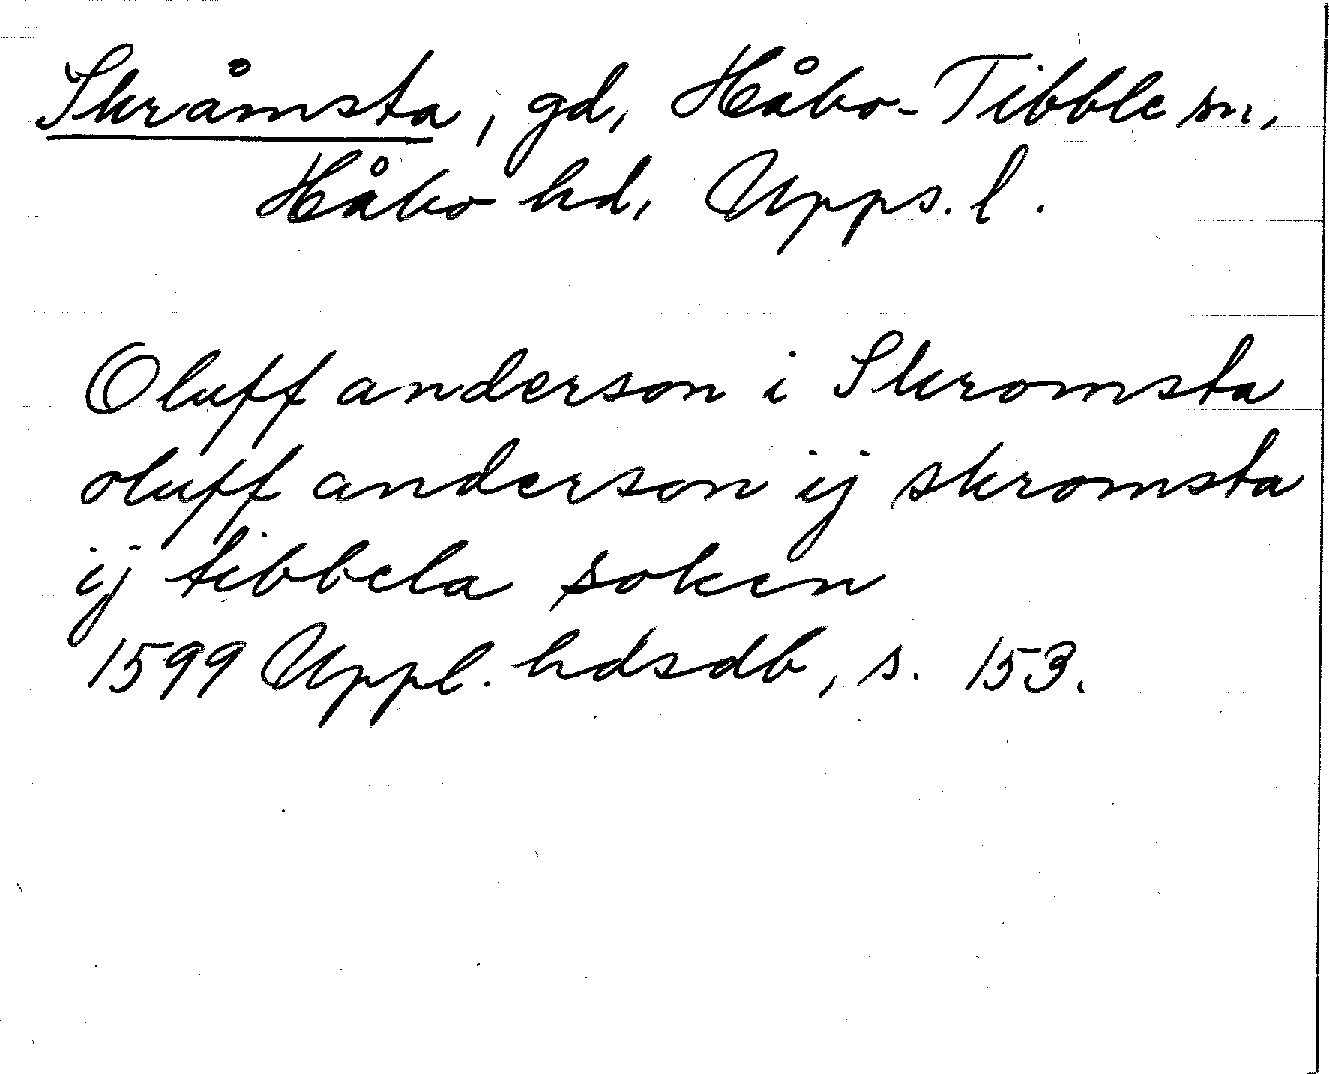 Skråmsta, gd, Håbo-Tibble sn,
Håbo hd, Upps. l.
Oluff anderson i Skromsta
oluff anderson ij skromsta
ij tibbela soken
1599 Uppl. hdsdb, s. 153.